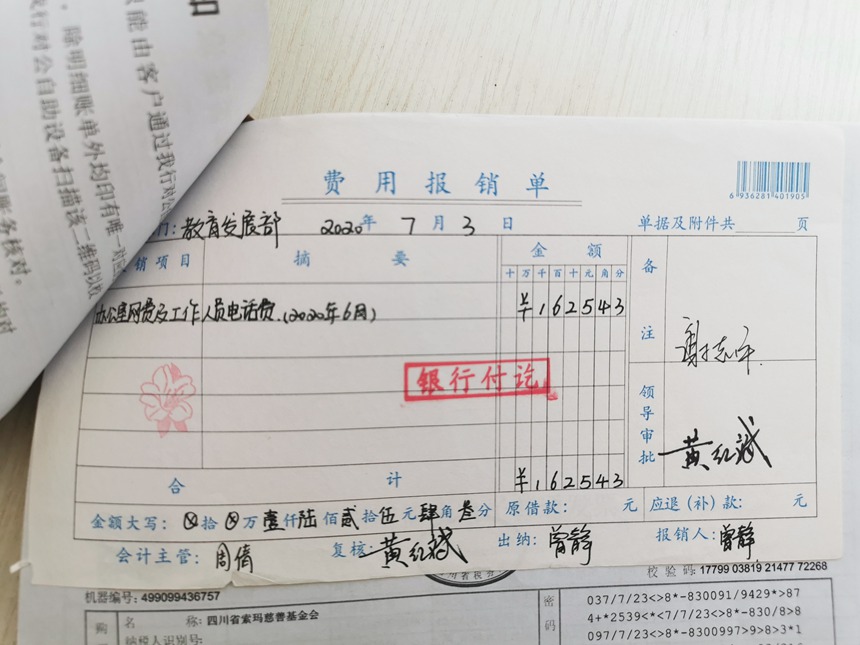 知
能由客户通过我行对
除明细账单外均印有唯一对
我行对公自助设备扫描该二维码以
账务核对。
费用报销单
6 936281 401905
门:教育发展部 2020年7月3日 单据及附件共 页
销项目 摘要 金额 备注
十万千百十元角分
办公室网费及工作人员电话费.(2020年6月) ¥162543
银行付讫
领导审批 黄红斌
合计 ¥162543
金额大写:ⓧ拾ⓧ万壹仟陆佰贰拾伍元肆角叁分 原借款: 元 应退(补)款: 元
会计主管:周倩 复核:黄红斌 出纳:曾静 报销人:曾静
校验码:17799 03819 21477 72268
机器编号:499099436757
购 名称:四川省索玛慈善基金会 密码 037/7/23<>8*-830091/9429*>87
纳税人识别号: 4+*2539<*<7/7/23<>8*-830/8>8
097/7/23<>8*-8300997>9>8>3*1